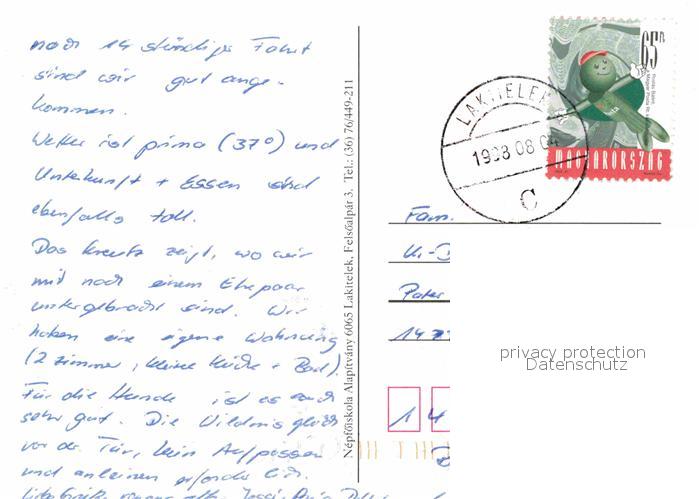 nach 14 stündiger Fahrt
sind wir gut ange-
kommen.
Wetter ist prima (37°) und
Unterkunft + Essen sind
ebenfalls toll.
Das Kreuz zeigt, wo wir
mit noch einem Ehepaar
untergebracht sind. Wir
haben eine eigene Wohnung
(2 Zimmer, kleine Küche + Bad).
Für die Hunde ist es auch
sehr gut. Die Wildnis gleich
vor der Tür, kein Aufpassen
und anleinen erforderlich.
Népfőiskola Alapítvány 6065 Lakitelek, Felsőalpár 3. Tel.: (36) 76/449-211
LAKITELEK
1998 08 04
C
65Ft
MAGYARORSZÁG
Fam.
Pater
14
privacy protection
Datenschutz